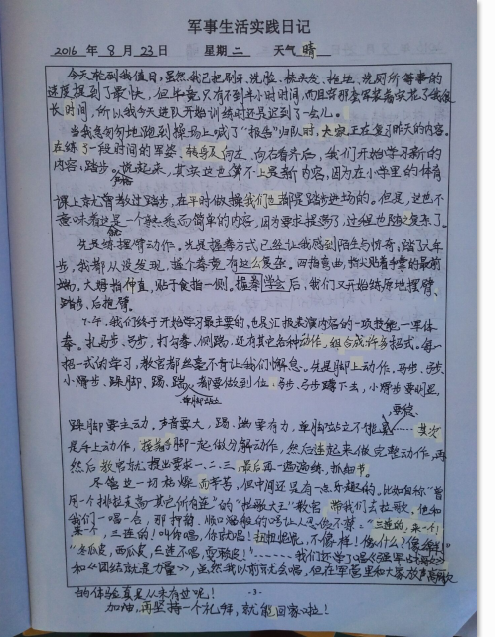 军事生活实践日记
2016 年 8 月 23 日 星期 二 天气 晴
今天轮到我值日，虽然我已把刷牙、洗脸、梳头发、拖地、洗厕所等事的
速度提到了最快，但毕竟只有不到半小时时间，而且穿那套军装着实花了我很
长时间，所以我今天进队开始训练时还是迟到了一会儿。
当我急匆匆地跑到操场上喊了“报告”归队时，大家正在复习昨天的内容。
在练了一段时间的军姿、转身及向左、向右看齐后，我们开始学习新的
内容：踏步。说起来，其实这也算不上是新内容，因为在小学里的体育
课上老师曾教过踏步，在平时做操我们也都是踏步进场的。但是，这也不
意味着这是一个熟悉而简单的内容，因为要求提高了，过程也随之复杂了。
先是练摆臂动作。光是握拳方式已经让我感到陌生与惊奇：踏了这么多年
步，我都从没发现，握个拳竟有这么复杂。四指弯曲，指尖贴着手掌的最前
端，大拇指伸直，贴于食指一侧。握拳学会后，我们又开始练原地摆臂、
踏步、后抱臂。
下午，我们终于开始学习最主要的，也是汇报表演内容的一项技能—军体
拳。扎马步、弓步，打勾拳、侧踢，还有其它各种动作，组合成许多招式。每一
招一式的学习，教官都丝毫不肯让我们懈怠。先是脚上动作。马步、弓步、
小滑步、跺脚、踢、踹、单脚站立都要做到位。马步、弓步蹲下去，小滑步要明显，
跺脚要主动、声音要大，踢、踹要有力，单脚站立不能晃……其次
是手上动作，接着手脚一起做分解动作，然后连起来做完整动作，再
然后教官就提出要求一、二、三，最后再一遍遍练，抓细节。
尽管这一切枯燥而辛苦，但中间还是有一点乐趣的。比如自称“曾
用一个排拉走高一其它所有连”的“拉歌大王”教官，带我们去拉歌，他和
我们一唱一合，那押韵、顺口溜般的口号让人忍俊不禁：“三连的，来一个！
来一个，三连的！叫你唱，你就唱！扭扭捏捏，不像样！像什么？像
“冬瓜皮，西瓜皮，
我们还学了唱《强军
和《团结就是力量》，虽然我以前就会唱，但在军营里和大家放声高歌
的体验真是从未有过呢！
加油，再坚持一个礼拜，就能回家啦！
-3-